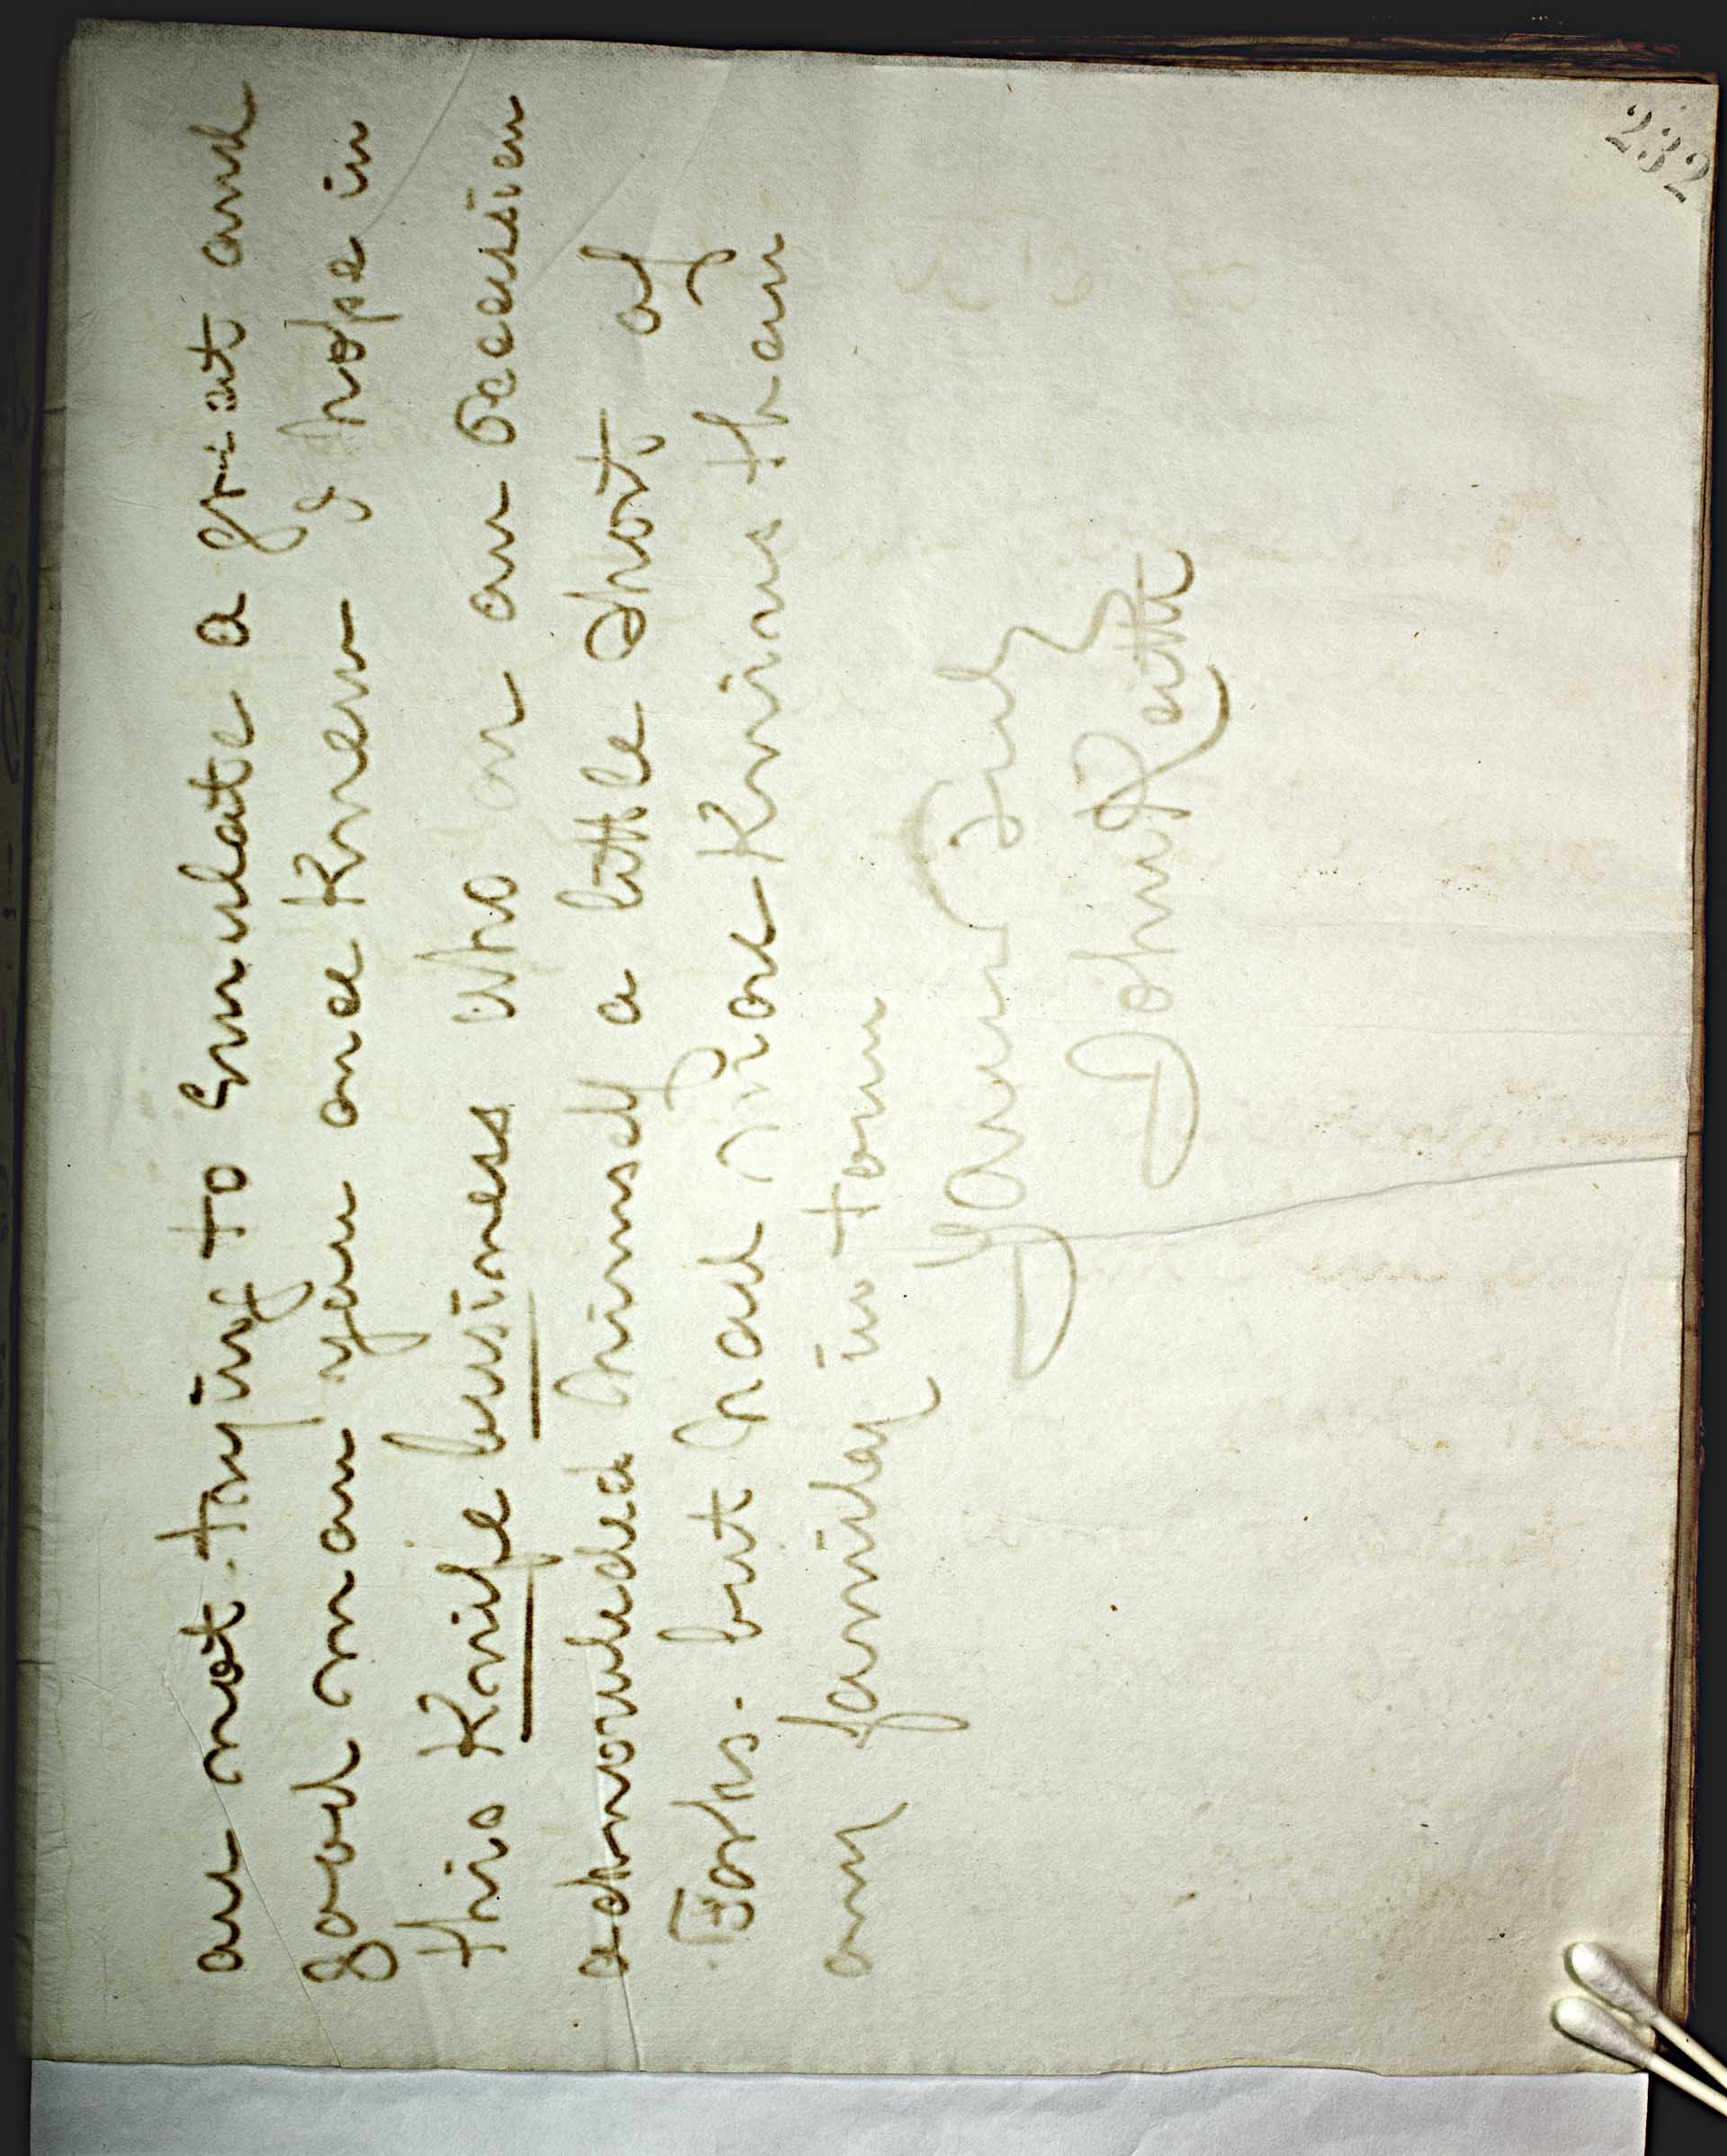 are not trying to Emulate a great and
good man you once Knew I hope in
this Knife business who on an occasion
acknowledged himself a little short of
Forks. but had more Knives than
any family in town
Yours Truly
John Keith
232